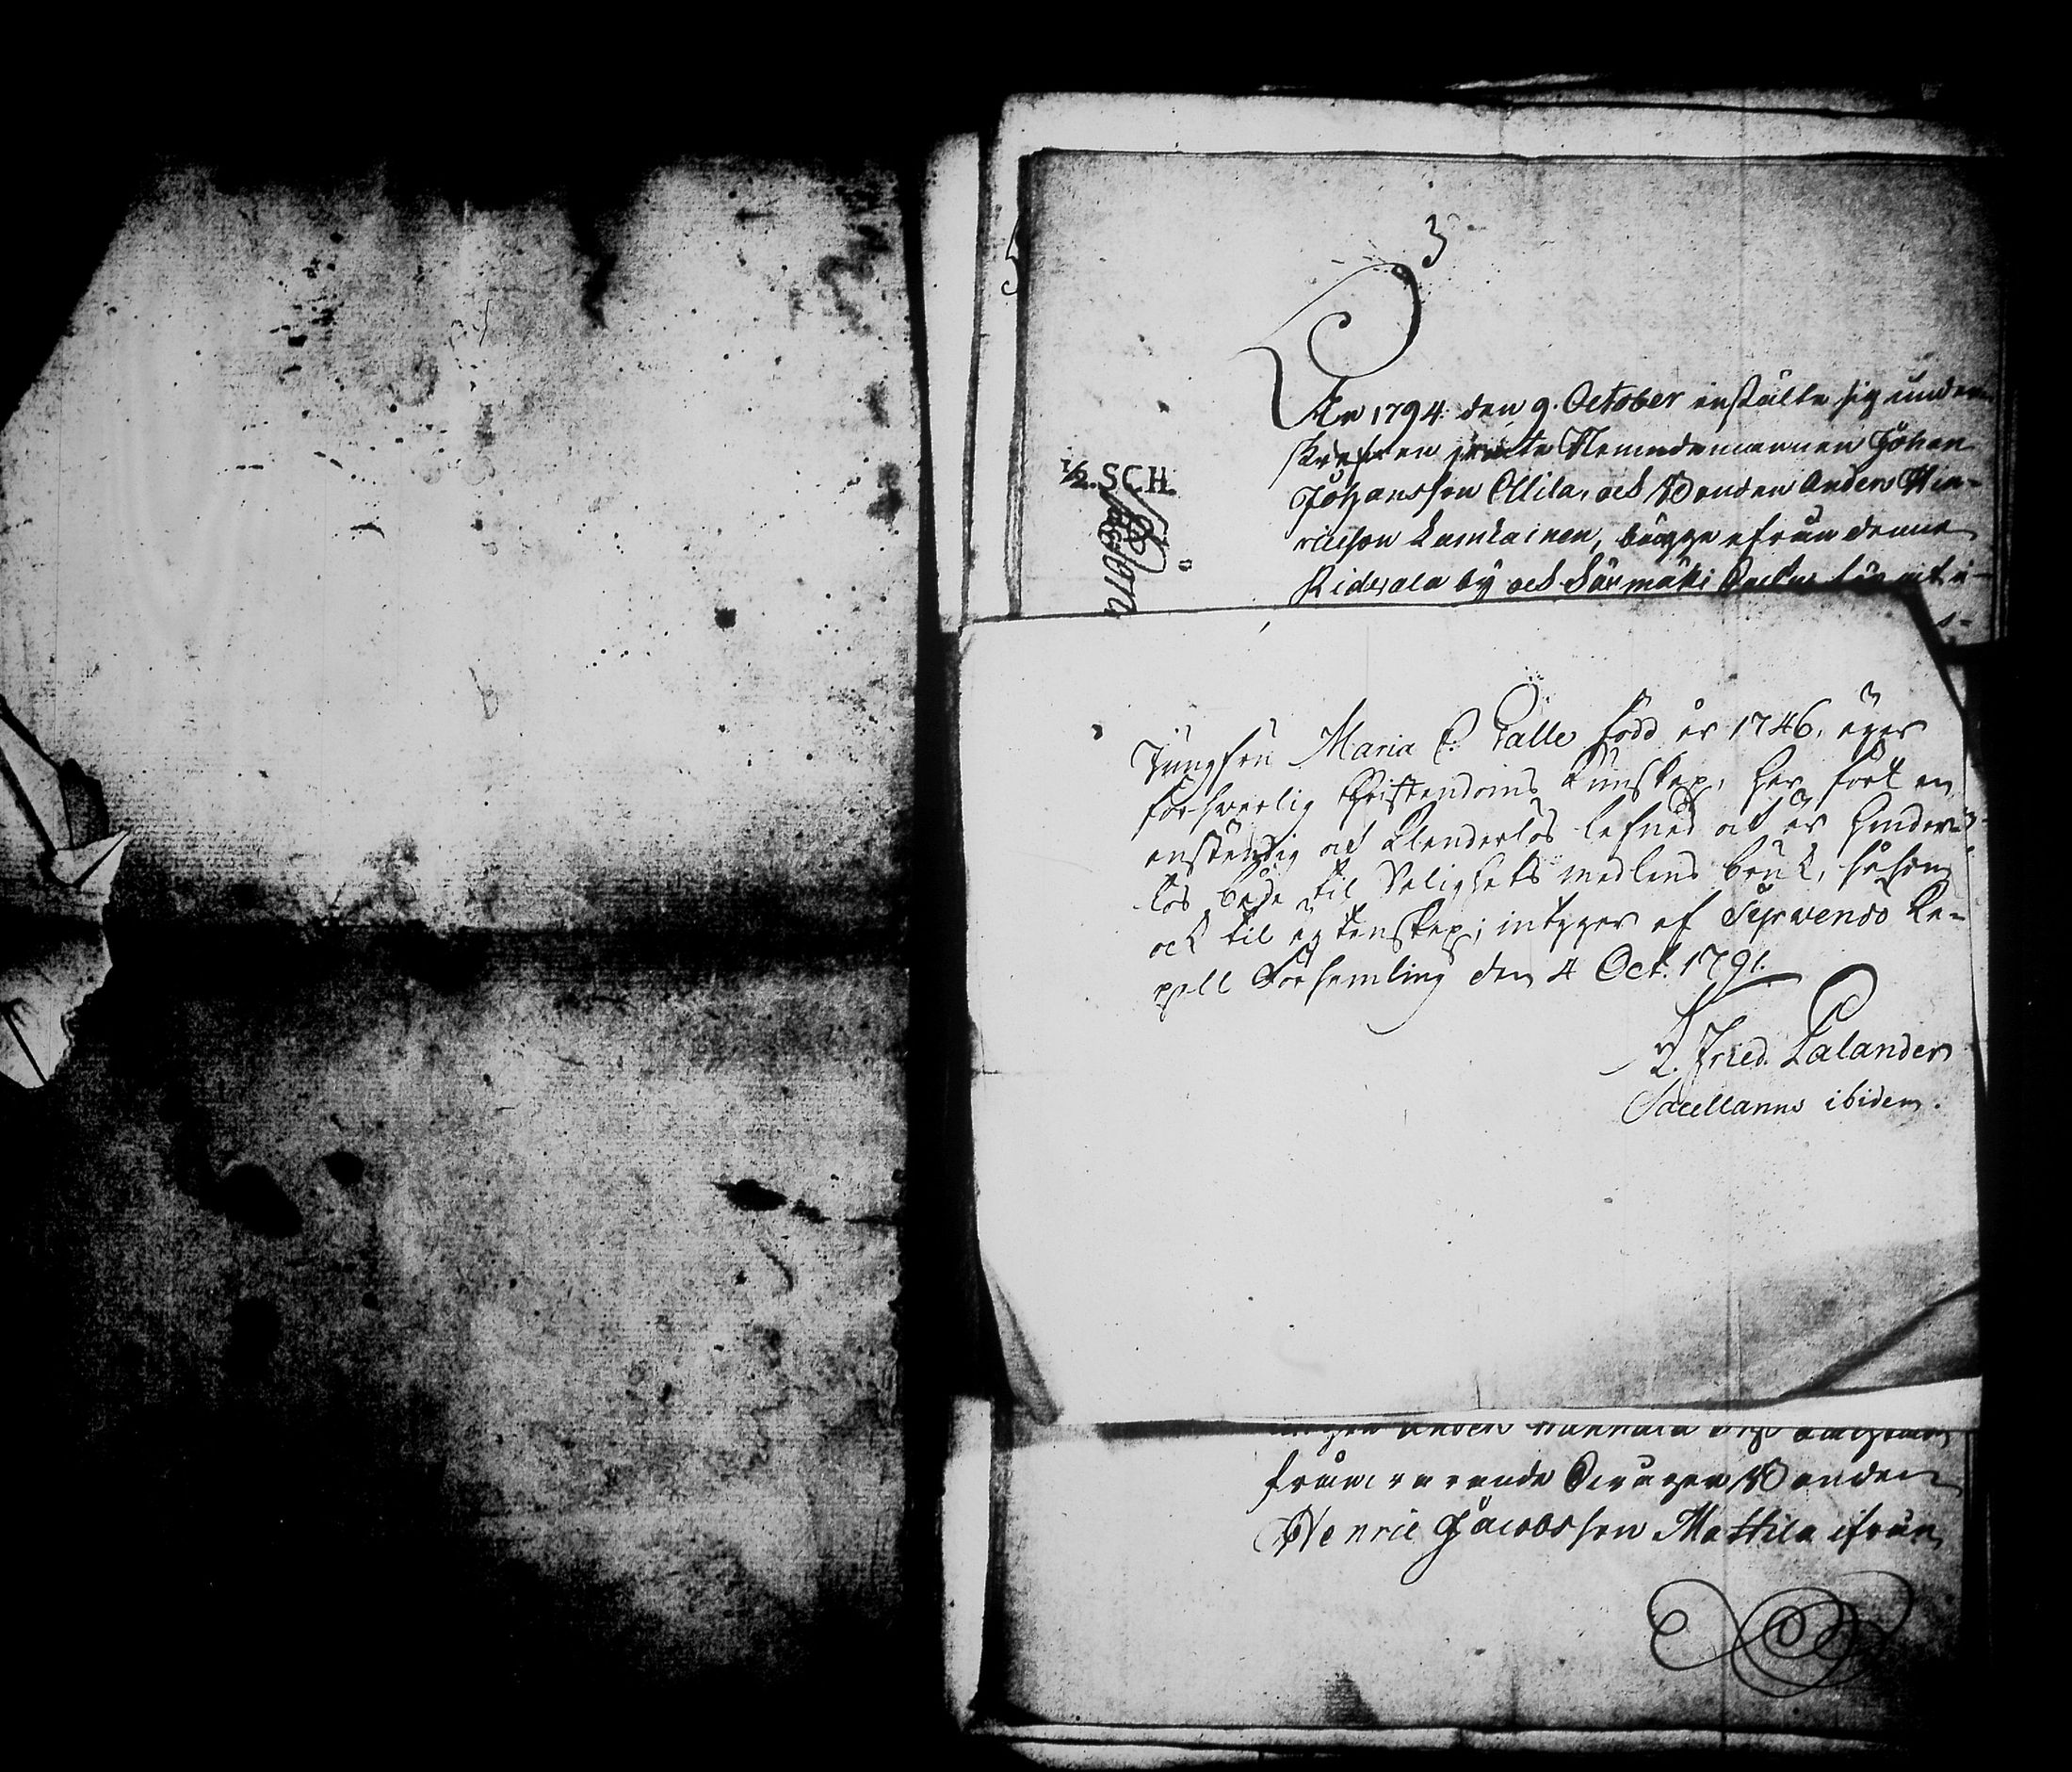 3
År 1794 den 9. October instälte sig under-
skrefven Nemndemannen Johan
Johansson Ollila, och Bonden Anders Hin-
ricsson Lamlainen, bägge ifrån denne
Ridvala by och Kärmäki
1/2. SCH.
Jungfru Maria C. Palle född år 1746, äger
försvarlig Christendoms kunskap, har fört en
anständig och klanderlös lefnad och är hinder-
lös både til Salighets medlens bruk, såsom
ock til egtenskap; intygar af Seprvendo Ca-
pell Församling den 4 Oct. 1791.
L. Fried. Palander
Sacellanus ibidem.
frånvarande Bonden
Henric Jacobsson Mattila ifrån